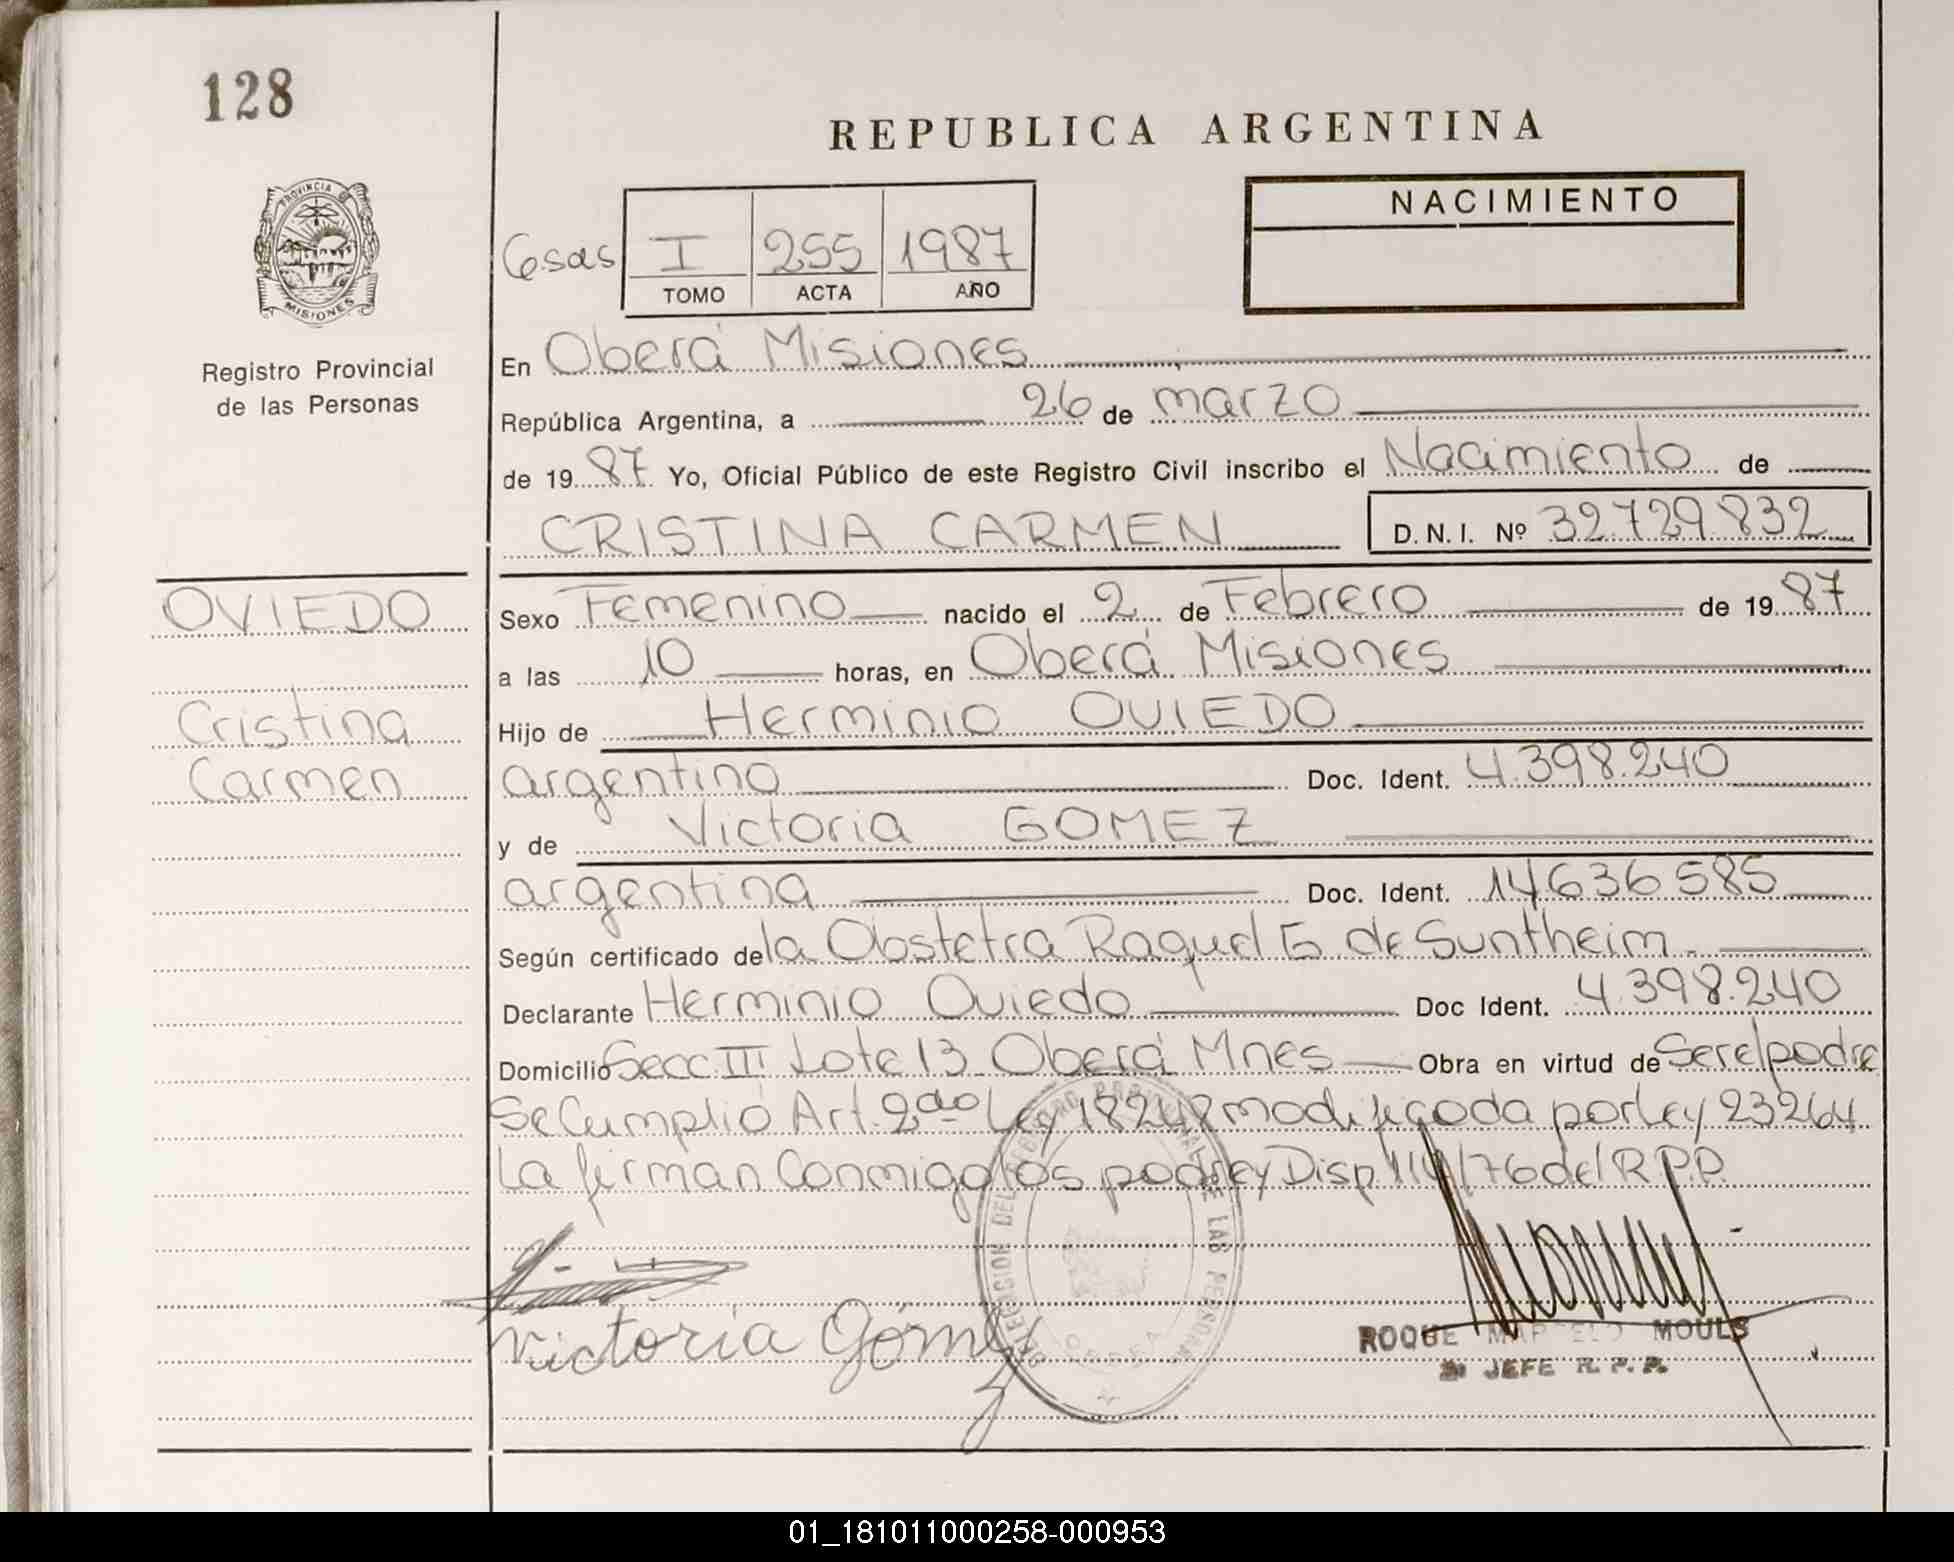 128
REPUBLICA ARGENTINA
PROVINCIA
MISIONES
Registro Provincial
de las Personas
NACIMIENTO
I 255 1987
TOMO ACTA AÑO
En Oberá Misiones
República Argentina, a 26 de marzo
de 1987 Yo, Oficial Público de este Registro Civil inscribo el Nacimiento de
CRISTINA CARMEN D.N.I. Nº 32.729.832
OVIEDO
Cristina
Carmen
Sexo Femenino nacido el 2 de Febrero de 1987
a las 10 horas, en Oberá Misiones
Hijo de Herminio OVIEDO
argentino Doc. Ident. 4.398.240
y de Victoria GOMEZ
argentina Doc. Ident. 14636585
Según certificado de la Obstetra Raquel G. de Suntheim
Declarante Herminio Oviedo Doc Ident. 4.398.240
Domicilio Secc III Lote 13 Oberá Mnes Obra en virtud de Ser el padre
Se Cumplió Art. 2do Ley 18248 modificada por Ley 23264
La firman Conmigo los padres y Disp 114/76 del R.P.P.
Victoria Gómez
DELEGACION DEL REGISTRO PROVINCIAL DE LAS PERSONAS
OBERA
ROQUE MARCELO MOULS
JEFE R.P.P.
01_181011000258-000953